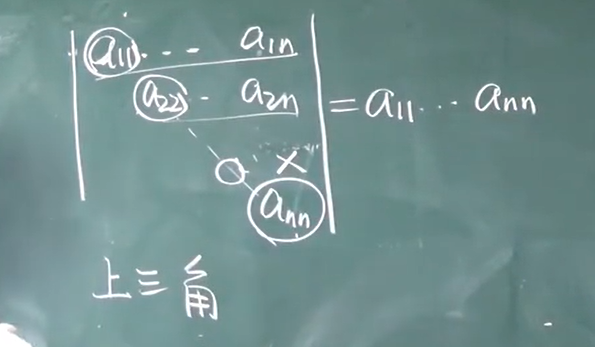 a11 ··· a1n
a22 · a2n = a11 ··· ann
×
ann
上三角